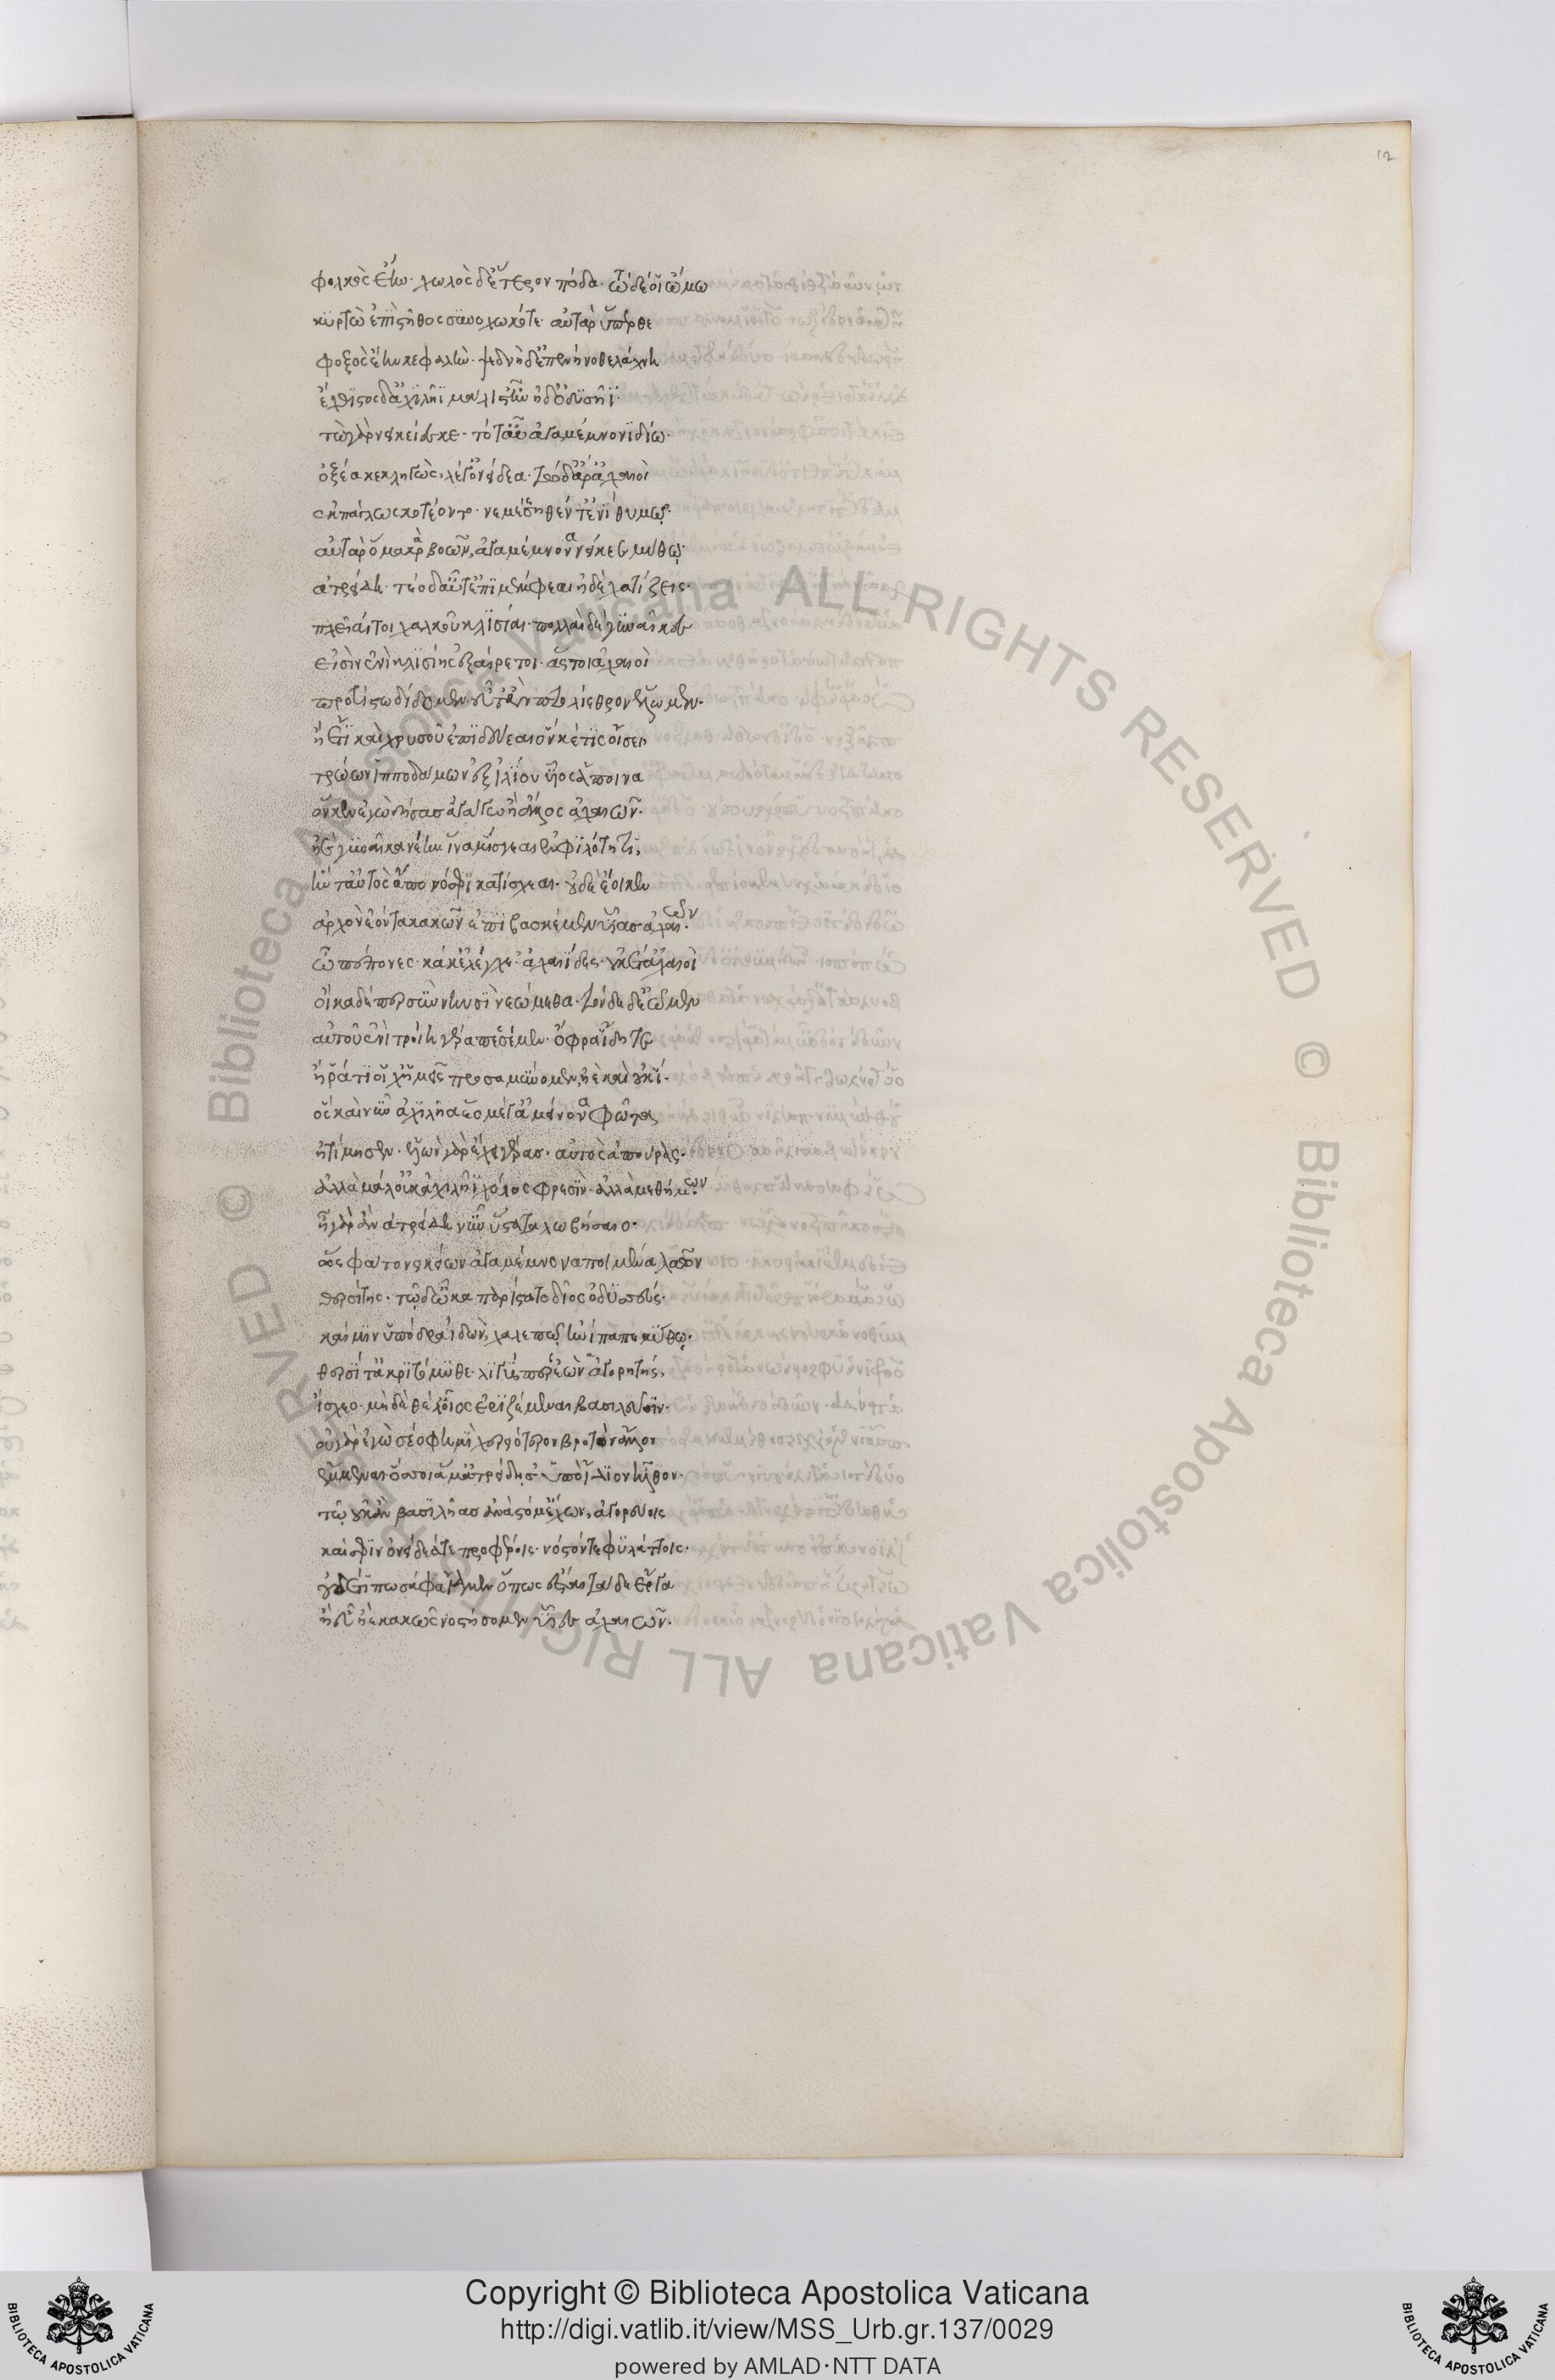 12
φολκὸς ἔην· χωλὸς δ' ἕτερον πόδα· τὼ δέ οἱ ὤμω
κυρτὼ ἐπὶ στῆθος συνοχωκότε· αὐτὰρ ὕπερθε
φοξὸς ἔην κεφαλήν· ψεδνὴ δ' ἐπενήνοθε λάχνη
ἔχθιστος δ' ἀχιλῆϊ μάλιστ' ἦν ἠδ' ὀδυσῆϊ·
τὼ γὰρ νεικείεσκε· τότ' αὖ ἀγαμέμνονι δίω·
ὀξέα κεκληγὼς, λέγ' ὀνείδεα· τῷ δ' ἄρ' ἀχαιοὶ
ἐκπάγλως κοτέοντο· νεμέσσηθέν τ' ἐνὶ θυμῷ·
αὐτὰρ ὁ μακρὰ βοῶν, ἀγαμέμνονα νείκεε μύθῳ·
ἀτρείδη· τέο δ' αὖτ' ἐπιμέμφεαι ἠδὲ χατίζεις·
πλεῖαί τοι χαλκοῦ κλισίαι· πολλαὶ δὲ γυναῖκες
εἰσὶν ἐνὶ κλισίῃς ἐξαίρετοι· ἅς τοι ἀχαιοὶ
πρωτίστω δίδομεν· εὖτ' ἂν πτολίεθρον ἕλωμεν·
ἢ ἔτι καὶ χρυσοῦ ἐπιδεύεαι ὅν κέ τις οἴσει
τρώων ἱπποδάμων ἐξ ἰλίου υἷος ἄποινα
ὅν κεν ἐγὼ δήσας ἀγάγω ἢ ἄλλος ἀχαιῶν·
ἠὲ γυναῖκα νέην ἵνα μίσγεαι ἐν φιλότητι,
ἥν τ' αὐτὸς ἄπο νόσφι κατίσχεαι· οὐ δὲ ἔοικεν
ἀρχὸν ἐόντα κακῶν ἐπιβασκέμεν υἷας ἀχαιῶν·
ὦ πέπονες· κάκ' ἐλέγχε' ἀχαιΐδες· οὐκέτ' ἀχαιοὶ
οἴκαδέ περ σὺν νηυσὶ νεώμεθα· τόνδε δ' ἐῶμεν
αὐτοῦ ἐνὶ τροίη γέρα πεσσέμεν· ὄφρα ἴδηται
ἤ ῥά τι οἱ χἡμεῖς προσαμύνομεν, ἠὲ καὶ οὐκί·
ὃς καὶ νῦν ἀχιλῆα ἕο μέγ' ἀμείνονα φῶτα
ἠτίμησεν· ἑλὼν γὰρ ἔχει γέρας· αὐτὸς ἀπούρας·
ἀλλὰ μάλ' οὐκ ἀχιλῆϊ χόλος φρεσὶν· ἀλλὰ μεθήμων·
ἦ γὰρ ἂν ἀτρείδη νῦν ὕστατα λωβήσαιο·
ὣς φάτο νεικείων ἀγαμέμνονα ποιμένα λαῶν
θερσίτης· τῷ δ' ὦκα παρίστατο δῖος ὀδυσσεύς·
καί μιν ὑπόδρα ἰδὼν, χαλεπῷ ἠνίπαπε μύθῳ·
θερσῖτ' ἀκριτόμυθε· λιγύς περ ἐὼν ἀγορητής,
ἴσχεο· μηδὲ θέλ' οἶος ἐριζέμεναι βασιλεῦσιν·
οὐ γὰρ ἐγὼ σέο φημὶ χερειότερον βροτὸν ἄλλον
ἔμμεναι ὅσσοι ἅμ' ἀτρείδῃς ὑπὸ ἴλιον ἦλθον·
τῷ οὐκ ἂν βασιλῆας ἀνὰ στόμ' ἔχων, ἀγορεύοις
καί σφιν ὀνείδεά τε προφέροις· νόστόν τε φυλάσσοις·
οὐδέ τί πω σάφα ἴδμεν ὅπως ἔσται τάδε ἔργα
ἢ εὖ ἠὲ κακῶς νοστήσομεν υἷες ἀχαιῶν·
© Biblioteca Apostolica Vaticana ALL RIGHTS RESERVED © Biblioteca Apostolica Vaticana ALL RIGHTS RESERVED
BIBLIOTECA APOSTOLICA VATICANA
Copyright © Biblioteca Apostolica Vaticana
http://digi.vatlib.it/view/MSS_Urb.gr.137/0029
powered by AMLAD·NTT DATA
BIBLIOTECA APOSTOLICA VATICANA